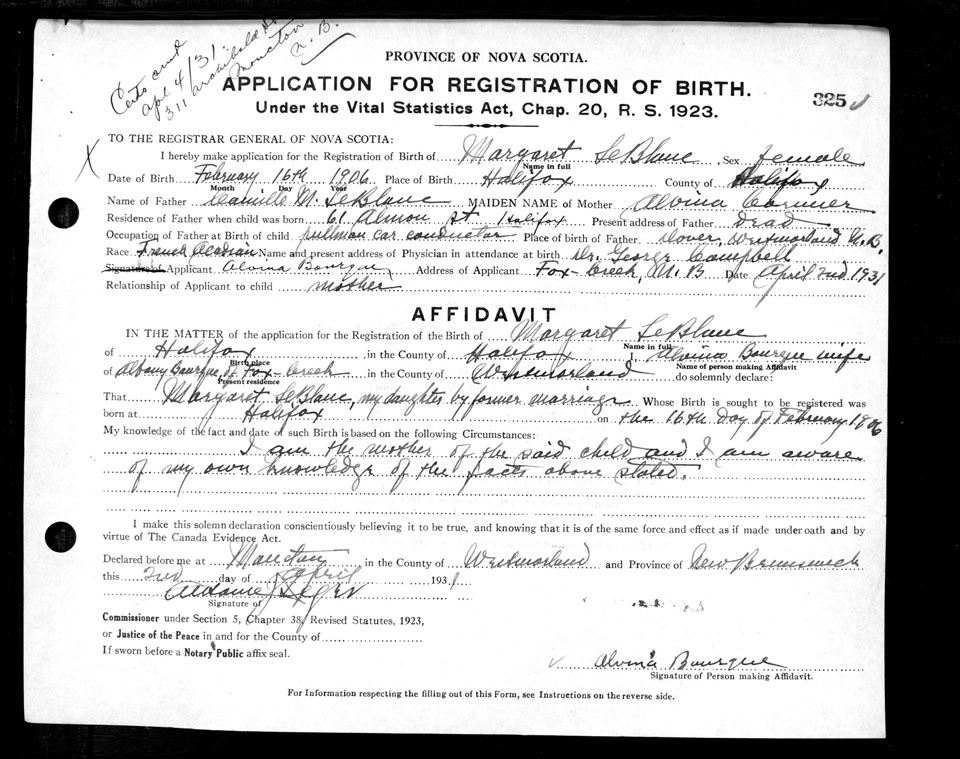 Certs sent
Apl 4/31
311 Archibald St
Moncton
N. B.
PROVINCE OF NOVA SCOTIA.
APPLICATION FOR REGISTRATION OF BIRTH.
Under the Vital Statistics Act, Chap. 20, R. S. 1923.
325
X
TO THE REGISTRAR GENERAL OF NOVA SCOTIA:
I hereby make application for the Registration of Birth of Margaret LeBlanc, Sex female
Name in full
Date of Birth February 16th 1906 Place of Birth Halifax County of Halifax
Month Day Year
Name of Father Camille M. LeBlanc MAIDEN NAME of Mother Alvina Cormier
Residence of Father when child was born 61 Almon St Halifax Present address of Father Dead
Occupation of Father at Birth of child pullman car conductor Place of birth of Father Dover, Westmorland N.B.
Race French Acadian Name and present address of Physician in attendance at birth Dr. George Campbell
Signature of Applicant Alvina Bourque Address of Applicant Fox-Creek, N.B Date April 2nd 1931
Relationship of Applicant to child mother
AFFIDAVIT
IN THE MATTER of the application for the Registration of the Birth of Margaret LeBlanc
Name in full
of Halifax in the County of Halifax I, Alvina Bourque wife
Birth place Name of person making Affidavit
of Albany Bourque of Fox-Creek in the County of Westmorland do solemnly declare:
Present residence
That Margaret LeBlanc, my daughter by former marriage Whose Birth is sought to be registered was
born at Halifax on the 16th Day of February 1906
My knowledge of the fact and date of such Birth is based on the following Circumstances:
I am the mother of the said child and I am aware
of my own knowledge of the facts above stated.
I make this solemn declaration conscientiously believing it to be true, and knowing that it is of the same force and effect as if made under oath and by
virtue of The Canada Evidence Act.
Declared before me at Moncton in the County of Westmorland and Province of New Brunswick
this 2nd day of April 1931
Signature of
Commissioner under Section 5, Chapter 38, Revised Statutes, 1923,
or Justice of the Peace in and for the County of
If sworn before a Notary Public affix seal.
Alvina Bourque
Signature of Person making Affidavit.
For Information respecting the filling out of this Form, see Instructions on the reverse side.